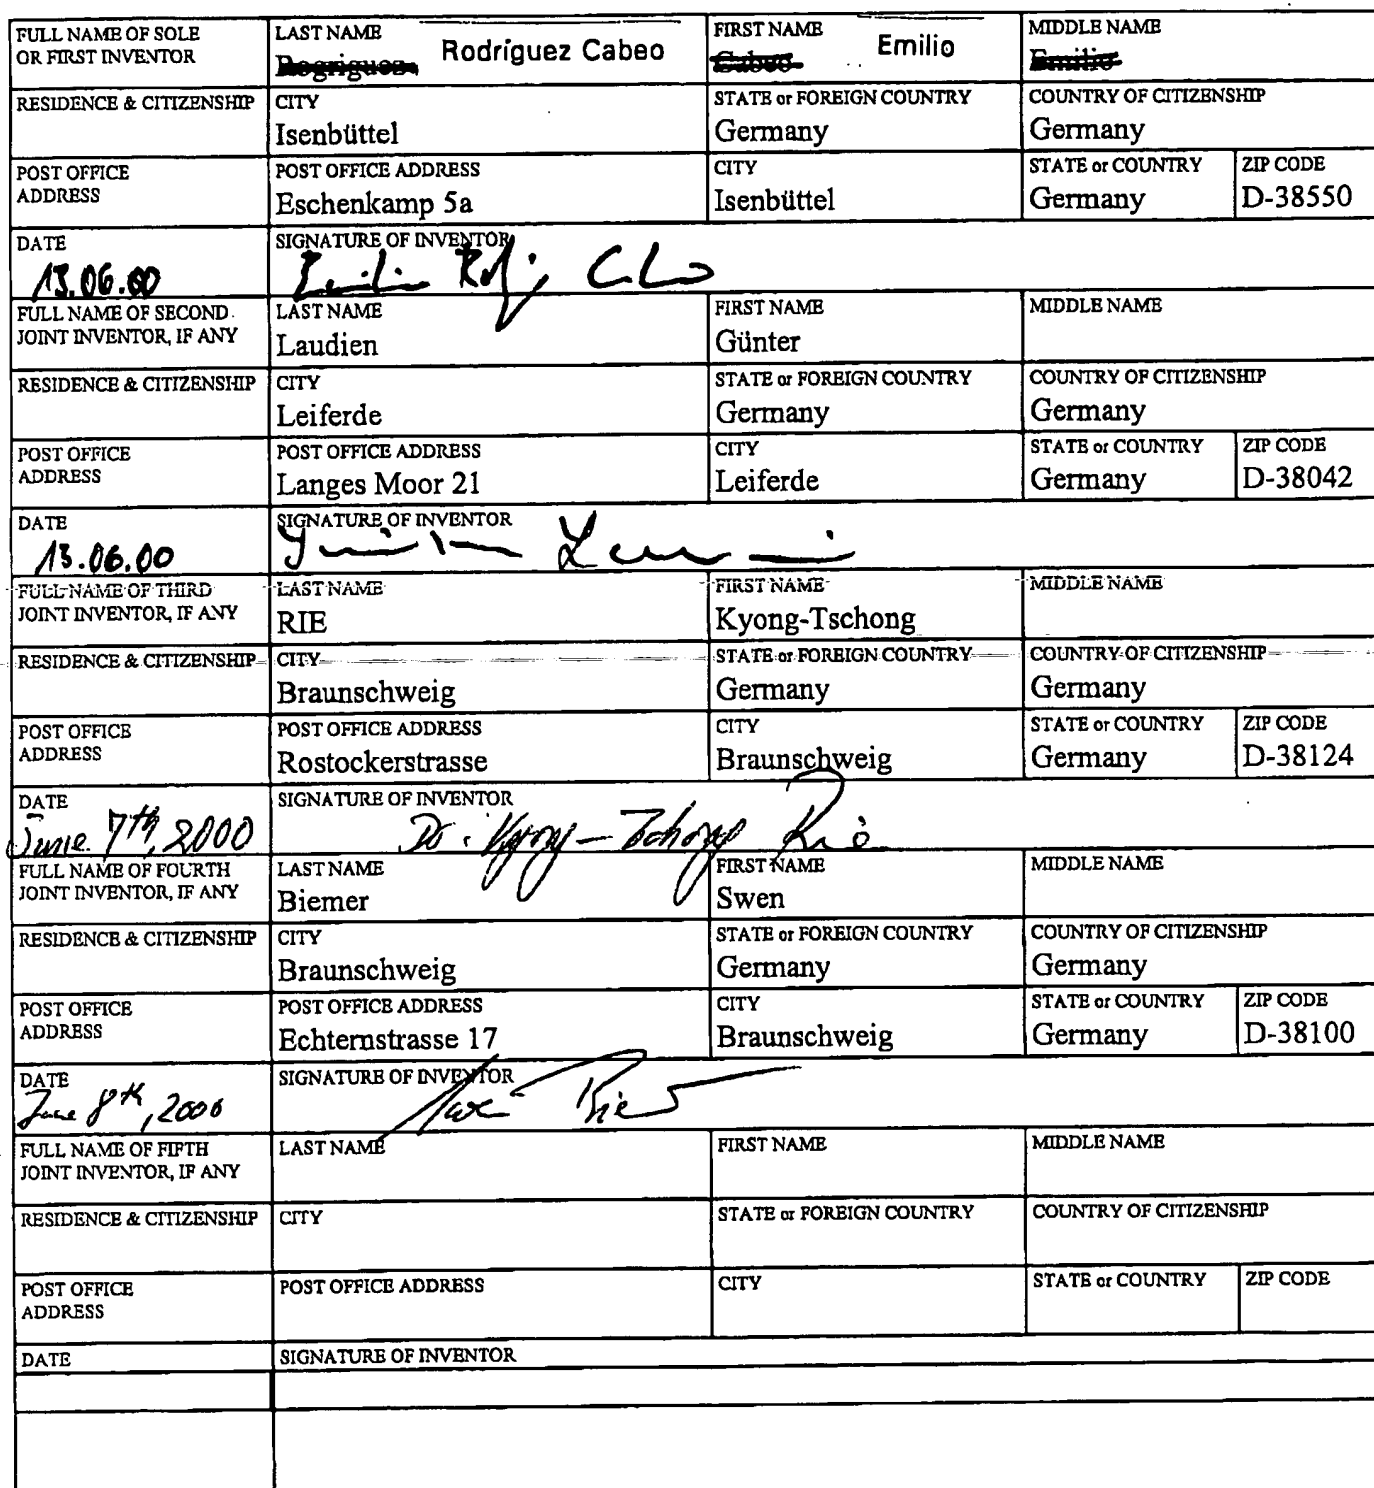 FULL NAME OF SOLE OR FIRST INVENTOR LAST NAME Rogriguez Rodríguez Cabeo FIRST NAME Cabeo Emilio MIDDLE NAME Emilio
RESIDENCE & CITIZENSHIP CITY Isenbüttel STATE or FOREIGN COUNTRY Germany COUNTRY OF CITIZENSHIP Germany
POST OFFICE ADDRESS POST OFFICE ADDRESS Eschenkamp 5a CITY Isenbüttel STATE or COUNTRY Germany ZIP CODE D-38550
DATE 13.06.00 SIGNATURE OF INVENTOR
FULL NAME OF SECOND JOINT INVENTOR, IF ANY LAST NAME Laudien FIRST NAME Günter MIDDLE NAME
RESIDENCE & CITIZENSHIP CITY Leiferde STATE or FOREIGN COUNTRY Germany COUNTRY OF CITIZENSHIP Germany
POST OFFICE ADDRESS POST OFFICE ADDRESS Langes Moor 21 CITY Leiferde STATE or COUNTRY Germany ZIP CODE D-38042
DATE 13.06.00 SIGNATURE OF INVENTOR
FULL NAME OF THIRD JOINT INVENTOR, IF ANY LAST NAME RIE FIRST NAME Kyong-Tschong MIDDLE NAME
RESIDENCE & CITIZENSHIP CITY Braunschweig STATE or FOREIGN COUNTRY Germany COUNTRY OF CITIZENSHIP Germany
POST OFFICE ADDRESS POST OFFICE ADDRESS Rostockerstrasse CITY Braunschweig STATE or COUNTRY Germany ZIP CODE D-38124
DATE June 7th, 2000 SIGNATURE OF INVENTOR Dr. Kyong-Tchong Rie
FULL NAME OF FOURTH JOINT INVENTOR, IF ANY LAST NAME Biemer FIRST NAME Swen MIDDLE NAME
RESIDENCE & CITIZENSHIP CITY Braunschweig STATE or FOREIGN COUNTRY Germany COUNTRY OF CITIZENSHIP Germany
POST OFFICE ADDRESS POST OFFICE ADDRESS Echternstrasse 17 CITY Braunschweig STATE or COUNTRY Germany ZIP CODE D-38100
DATE June 8th, 2000 SIGNATURE OF INVENTOR
FULL NAME OF FIFTH JOINT INVENTOR, IF ANY LAST NAME FIRST NAME MIDDLE NAME
RESIDENCE & CITIZENSHIP CITY STATE or FOREIGN COUNTRY COUNTRY OF CITIZENSHIP
POST OFFICE ADDRESS POST OFFICE ADDRESS CITY STATE or COUNTRY ZIP CODE
DATE SIGNATURE OF INVENTOR